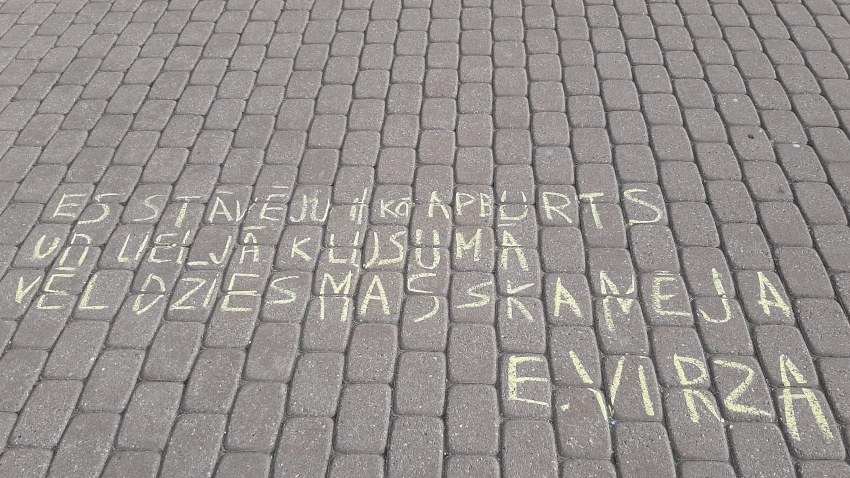 ES STĀVĒJU IKO APBURTS
UN LIELJĀ KLUSUMĀ
VĒL DZIESMAS SKANĒJA
E. VIRZA